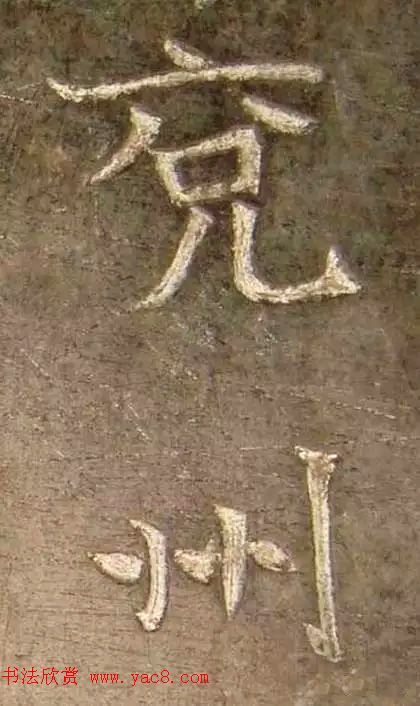 兖
州
书法欣赏 www.yac8.com